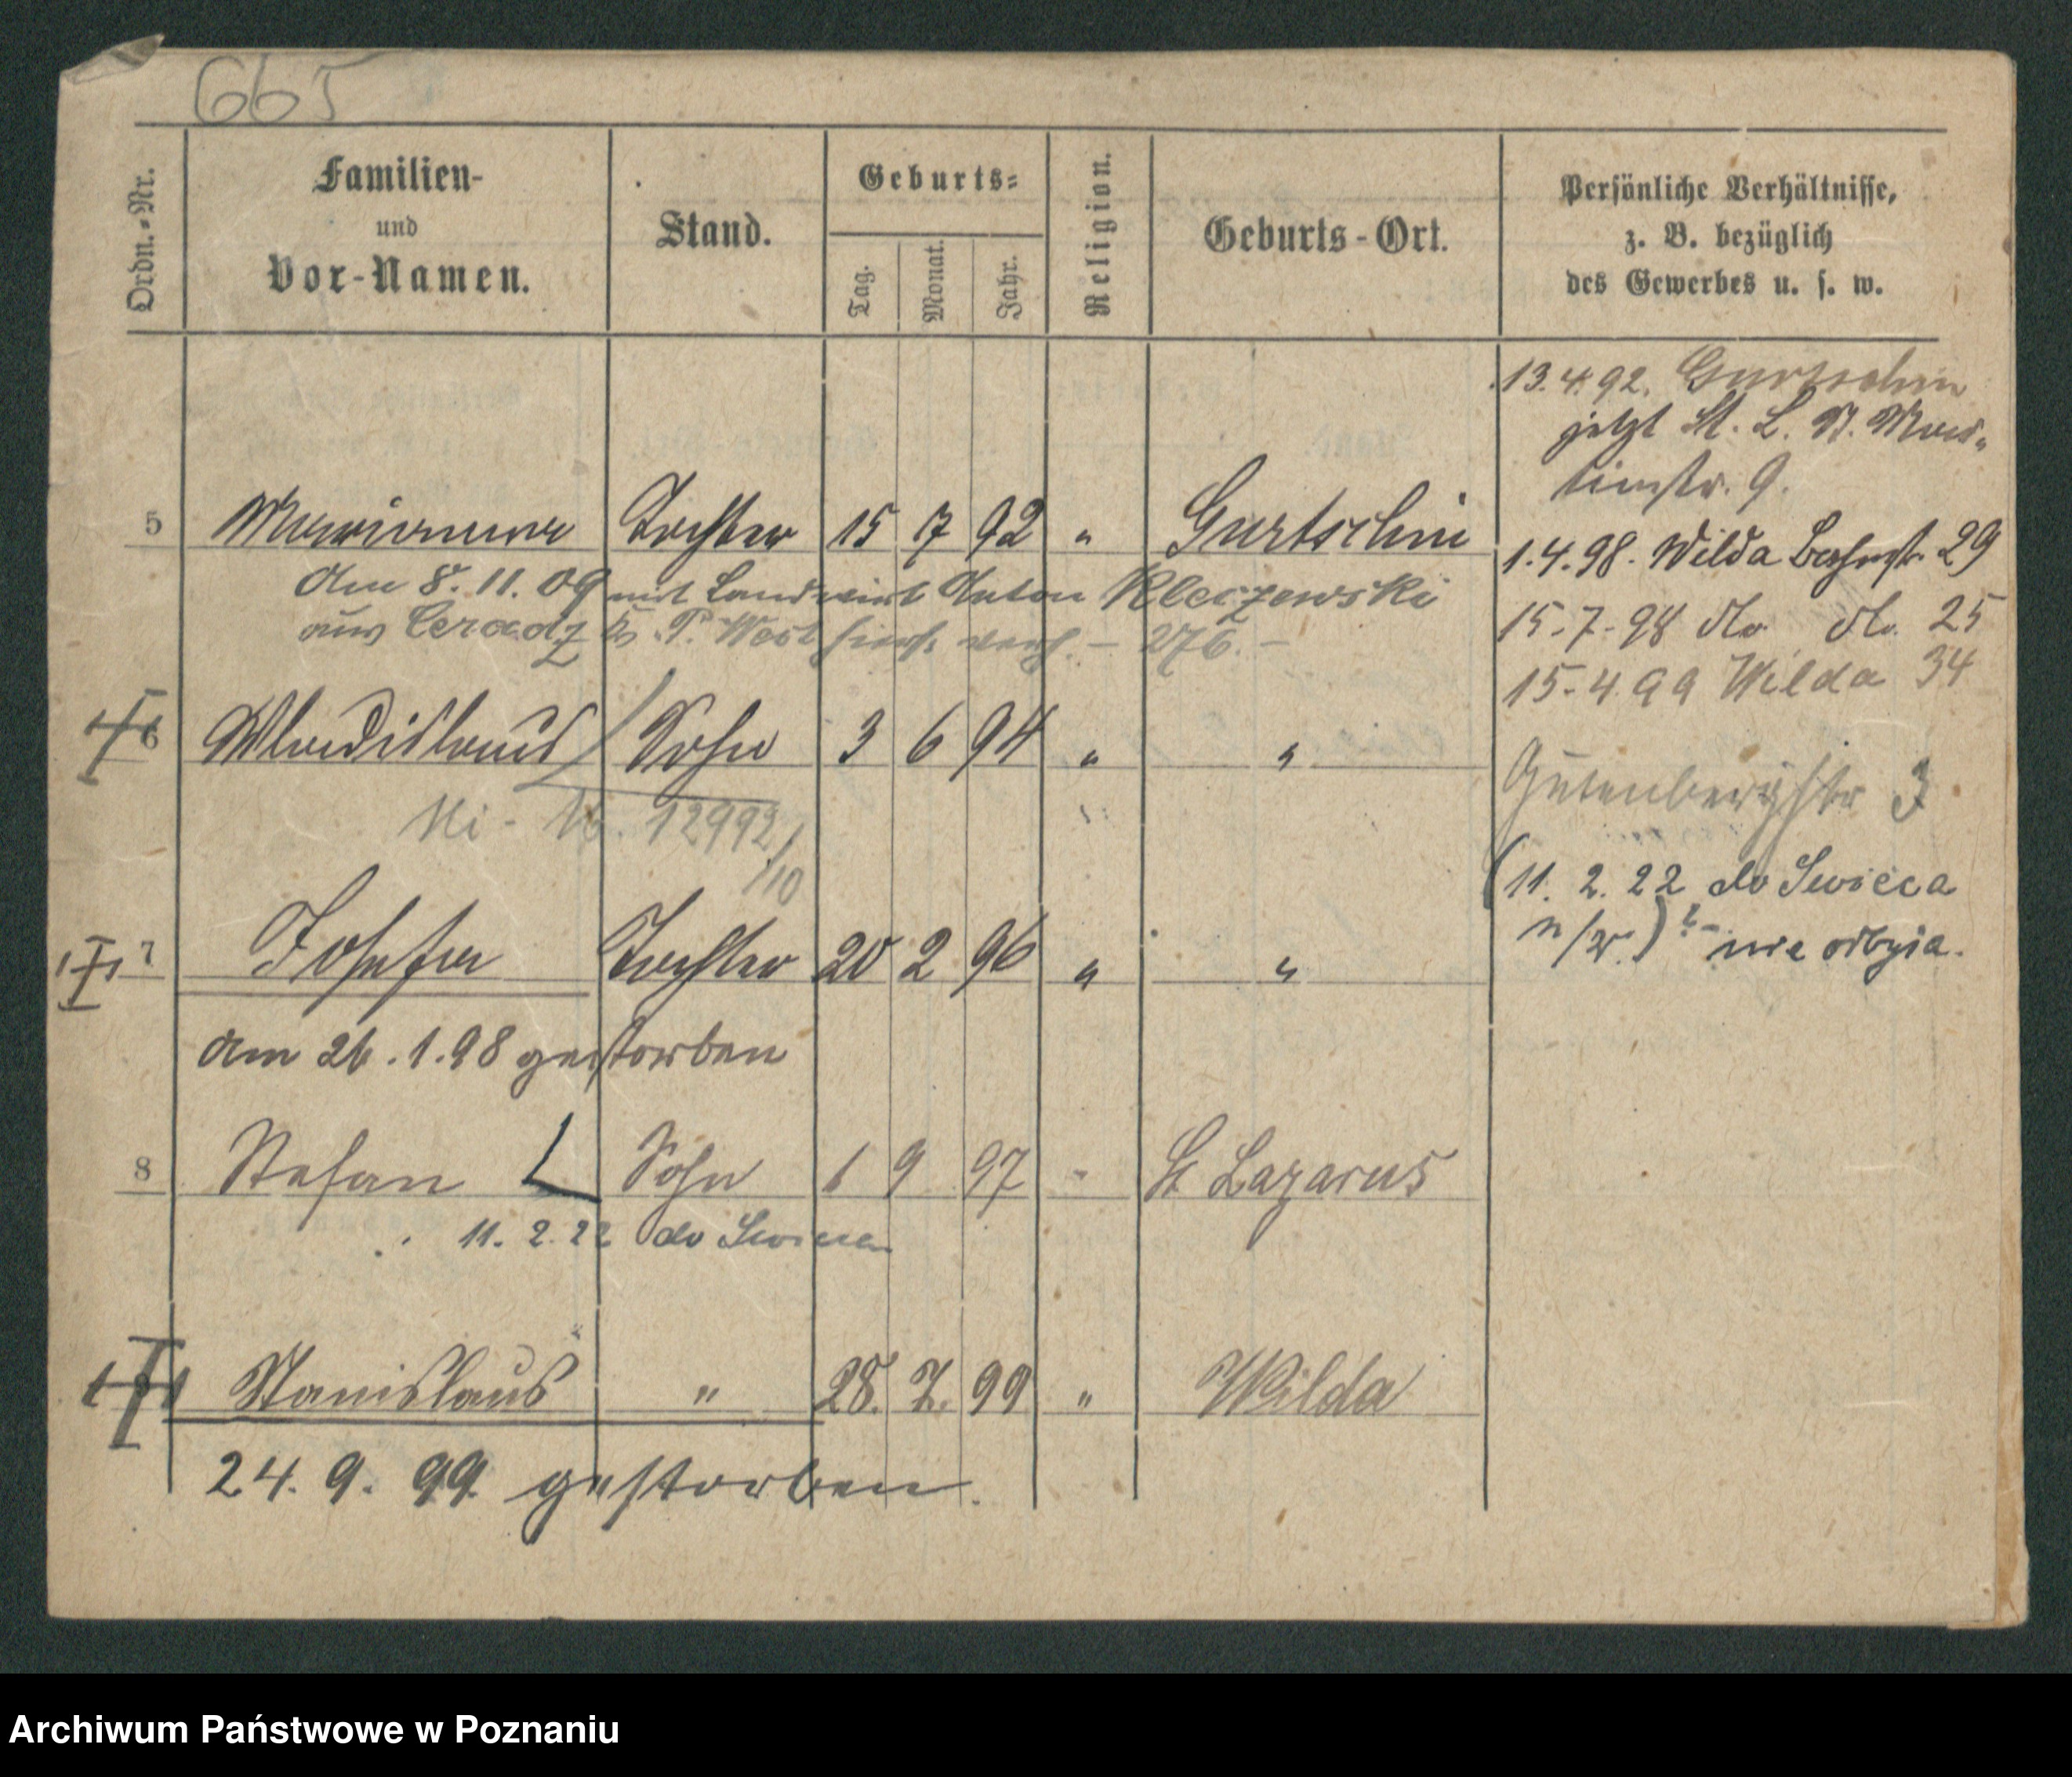 665
Ordn.-Nr.
Familien-
und
Vor-Namen.
Stand.
Geburts-
Tag.
Monat.
Jahr.
Religion.
Geburts-Ort.
Persönliche Verhältnisse,
z. B. bezüglich
des Gewerbes u. s. w.
13.4.92. Gurtschin
jetzt St. L.
str. 9.
5 Marianna Tochter 15 7 92 " Gurtschin
1.4.98. Wilda Bahnstr. 29
Am 8. 11. 09 mit Landwirt Anton Kleczewski
aus Ceradz Kr. P. West verh. – 276. –
15-7-98 do do. 25
15-4.99 Wilda 34
6 Wladislaus Sohn 3 6 94 " "
Gutenbergstr 3
12992/10
(11. 2. 22 do Swieca
n/W.) nie odbyia.
7 Josefa Tochter 20 2 96 " "
am 26.1.98 gestorben
8 Stefan Sohn 1 9 97 - St Lazarus
11. 2. 22 do
Stanislaus " 28. 7. 99 " Wilda
24. 9. 99. gestorben.
Archiwum Państwowe w Poznaniu